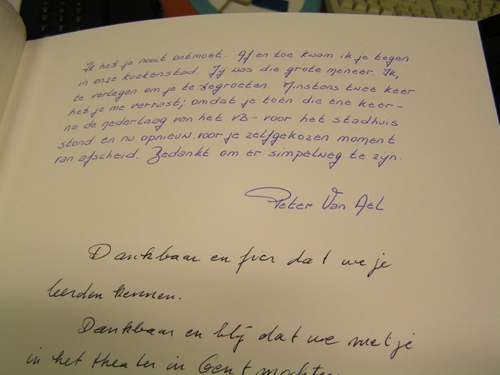 Ik heb je nooit ontmoet. Af en toe kwam ik je tegen
in onze koekenstad. Jij was die grote meneer. Ik,
te verlegen om je te begroeten. Minstens twee keer
heb je me verrast; omdat je toen die ene keer -
na de nederlaag van het VB - voor het stadhuis
stond en nu opnieuw voor je zelfgekozen moment
van afscheid. Bedankt om er simpelweg te zijn.
Peter Van Ael
Dankbaar en fier dat we je
leerden kennen.
Dankbaar en blij dat we met je
in het theater in Gent mochten